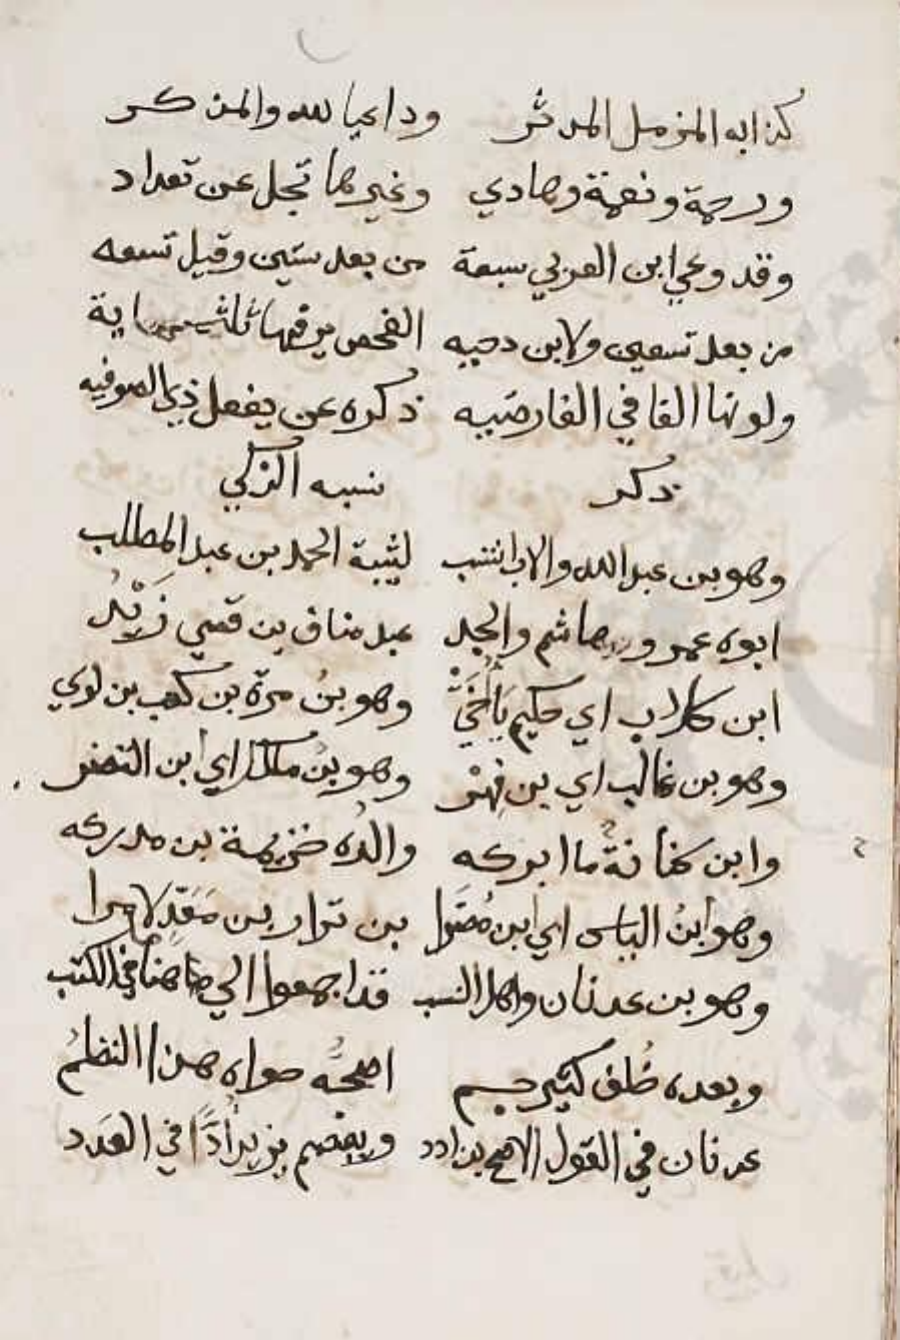 كذا به المزمل المدثر وداعيا لله والمذكر
ورحمة ونعمة وهادي وغيرها تجل عن تعداد
وقد وعى ابن العربي سبعة من بعد ستين وقيل تسعه
من بعد تسعين ولابن دحيه الفحص يوفيها ثلثماية
وكونها الفا في الفارضيه ذكره عن بعض ذي الصوفيه
ذكر نسبه الزكي
وهو بن عبد الله والاب انتسب لشيبة الحمد بن عبد المطلب
ابوه عمرو هاشم والجد عبد مناف بن قصي زَيْدُ
ابن كلاب اي حكيم يَا أُخَيَّ وهو بنُ مرة بن كعب بن لوي
وهو بن غالب اي بن فهر وهو بنُ مالك اي ابن النضر
وابن كنانةُ ما ابركه والدُه خزيمة بن مدركه
وهو ابنُ الياس اي ابن مُضَرا بن نزار بن مَعَدٍّ لا مرا
وهو بن عدنان واهل النسب قد اجمعوا الي هنا في الكتب
وبعده خُلف كثير جم اصحُّه حواه هذا النظمُ
عدنان في القول الاصح بن ادد وبعضهم يزيد أُدًّا في العَدد